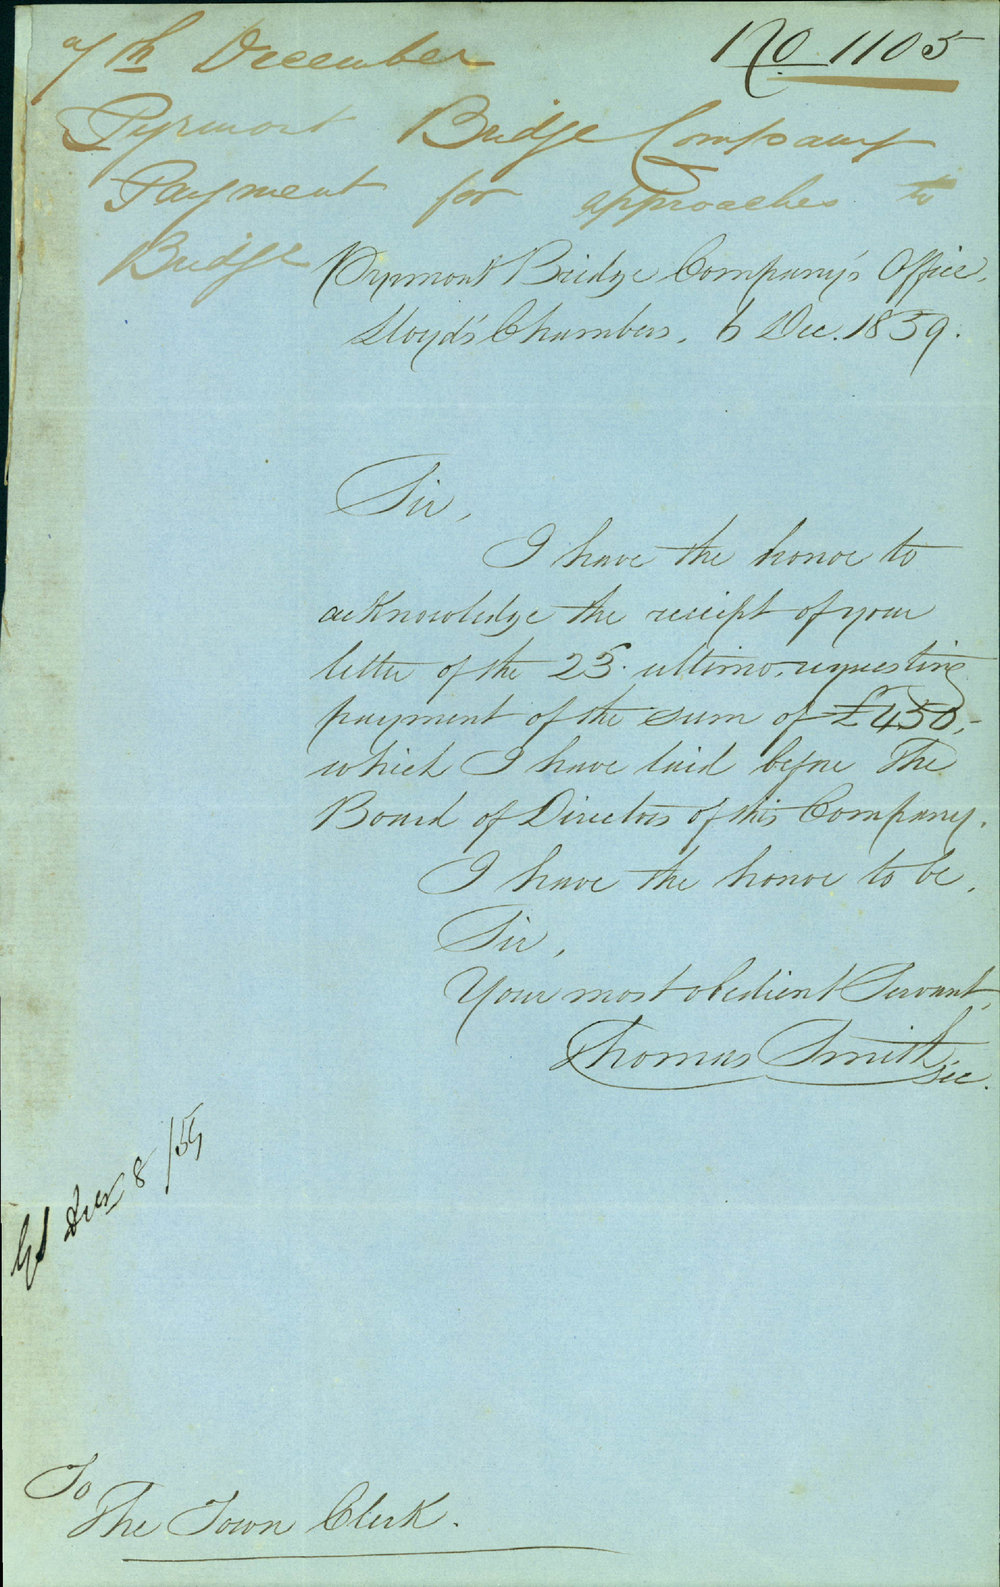 7th December
No. 1105
Pyrmont Bridge Company
Payment for approaches to
Bridge
Pyrmont Bridge Company's Office,
Lloyd's Chambers, 6 Dec. 1859.
Sir,
I have the honor to
acknowledge the receipt of your
letter of the 25. ultimo, requesting
payment of the sum of £450,-
which I have laid before The
Board of Directors of this Company.
I have the honor to be,
Sir,
Your most obedient Servant,
Thomas Smith
Sec.
8/59
To
The Town Clerk.